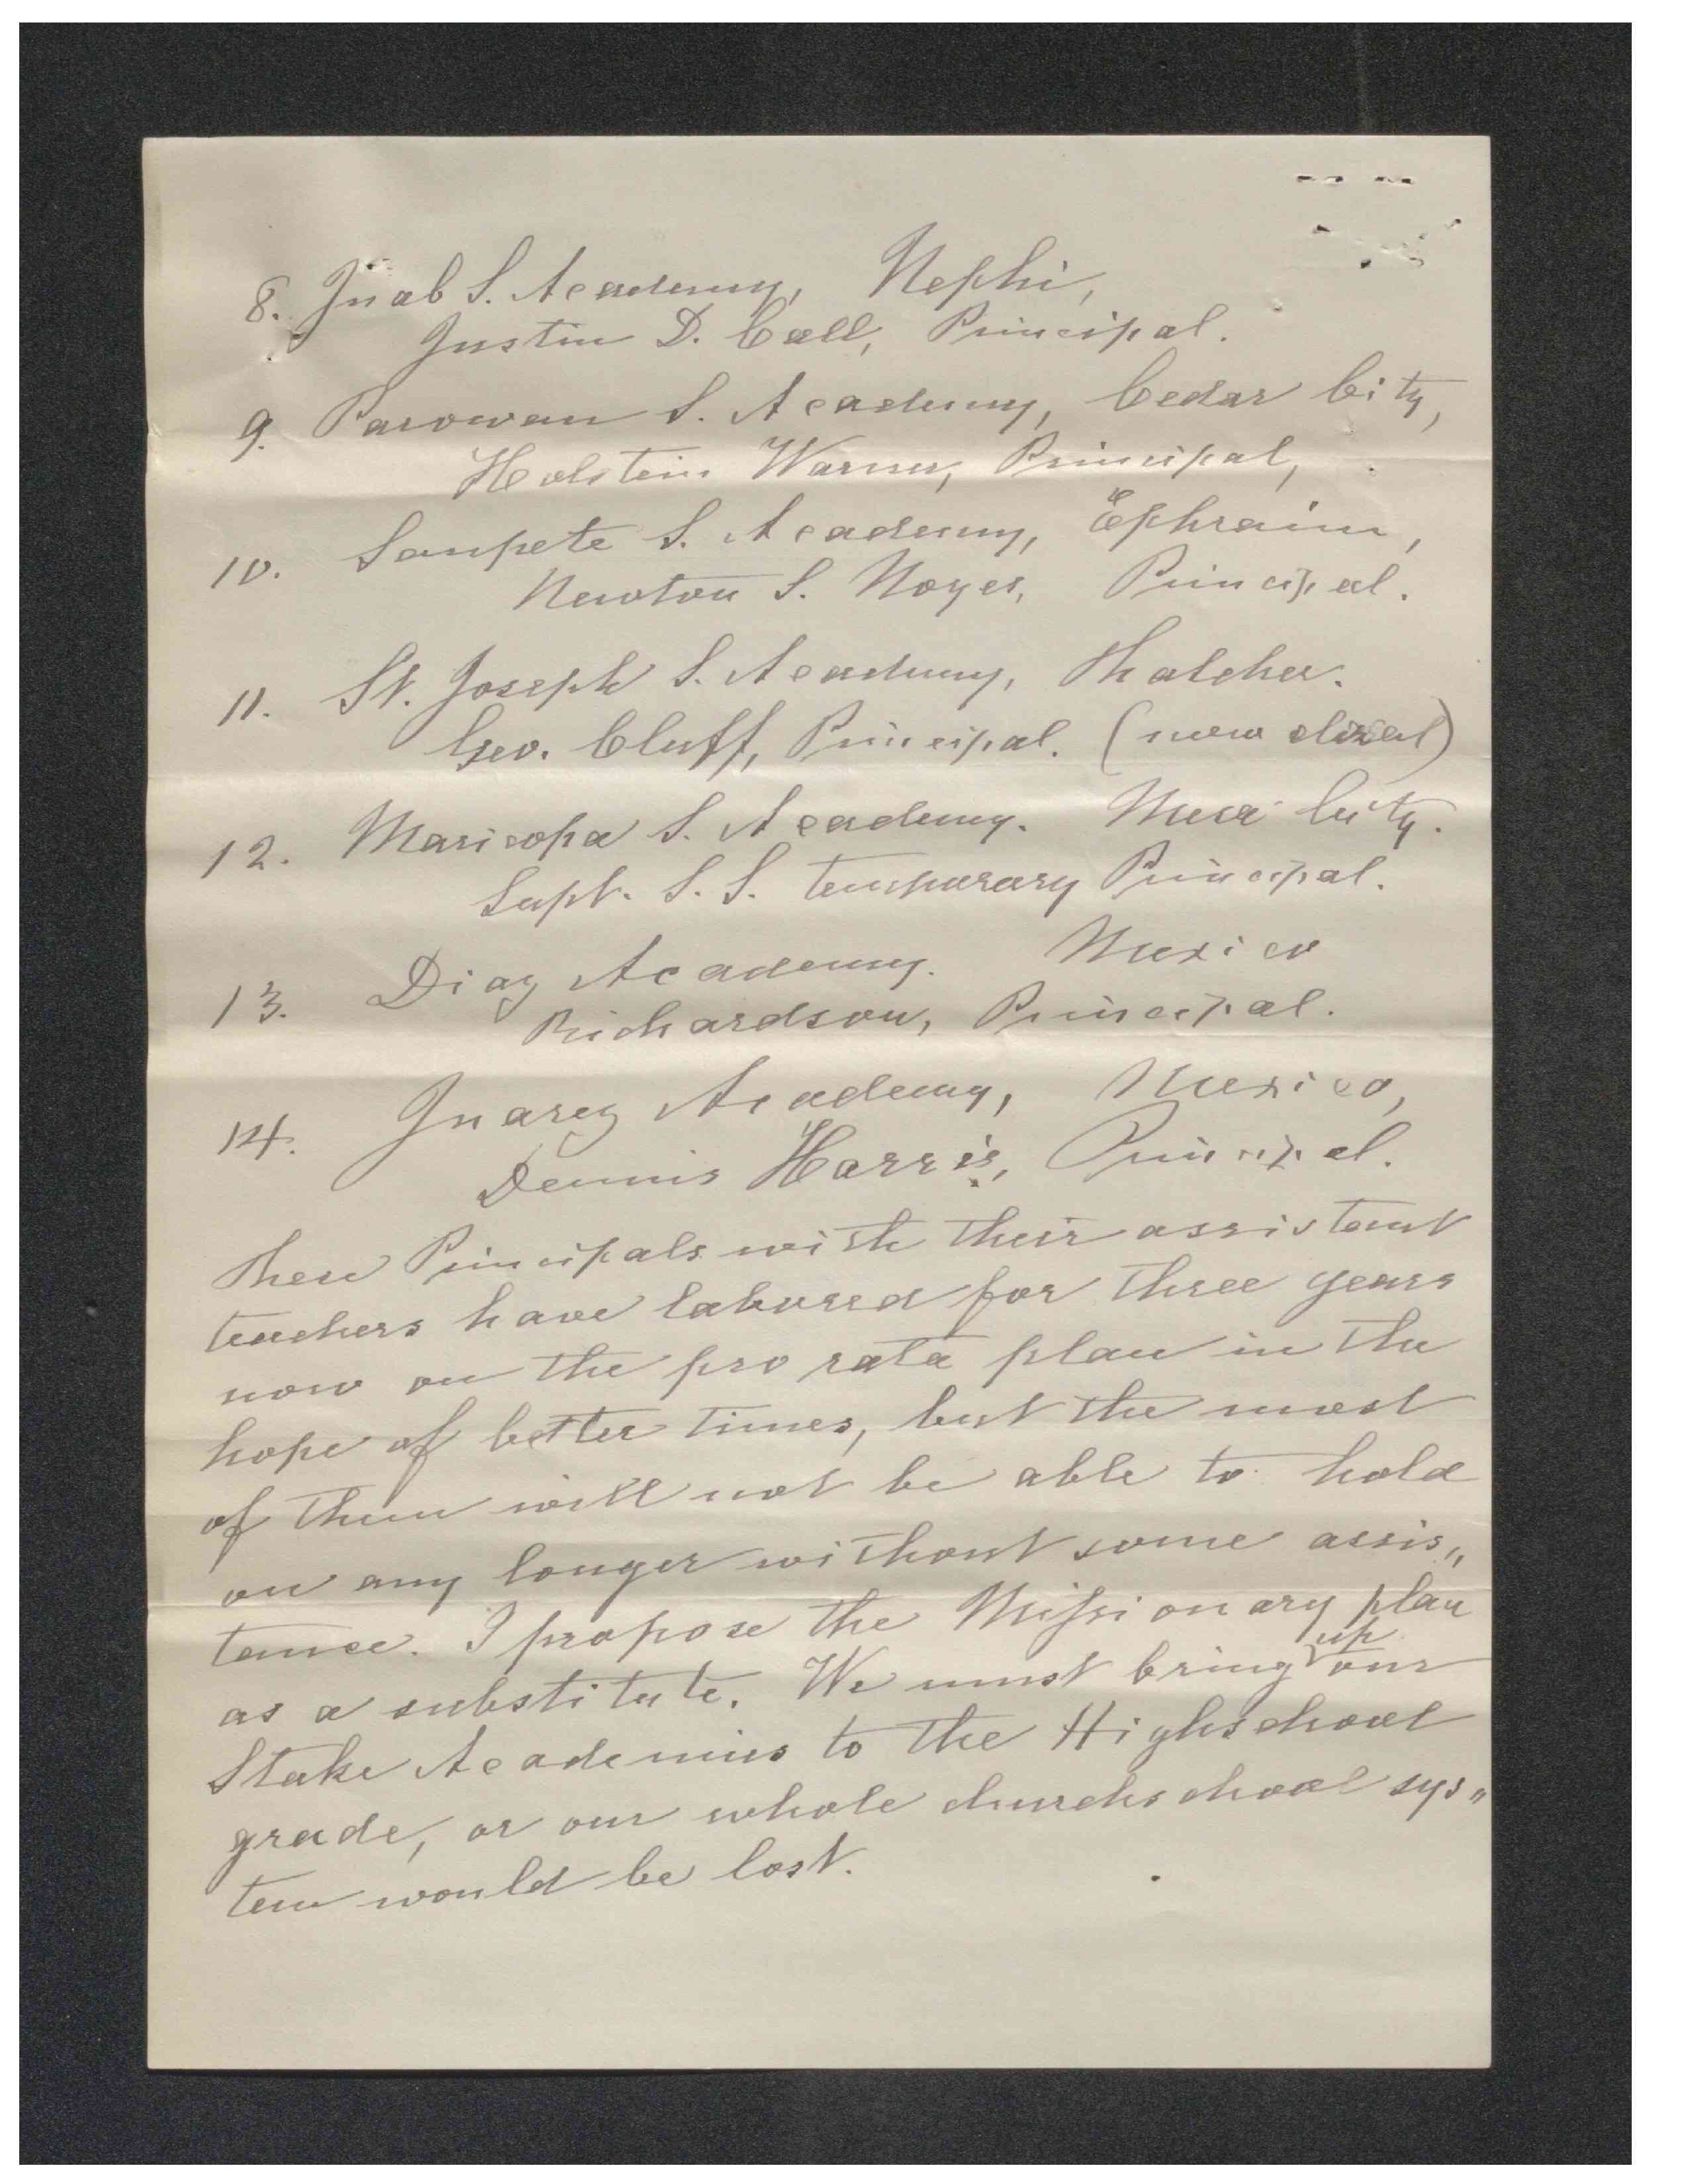 8. Juab S. Academy, Nephi,
Justin D. Call, Principal.
9. Parowan S. Academy, Cedar City,
Holstein Warner, Principal,
10. Sanpete S. Academy, Ephraim,
Newton S. Noyes, Principal.
11. St. Joseph S. Academy, Thatcher.
Geo. Cluff, Principal. (now closed)
12. Maricopa S. Academy. Mesa City.
Supt. S. S. temporary Principal.
13. Diaz Academy. Mexico
Richardson, Principal.
14. Juarez Academy, Mexico,
Dennis Harris, Principal.
These Principals with their assistant
teachers have labored for three years
now on the pro rata plan in the
hope of better times, but the most
of them will not be able to hold
on any longer without some assis„
tance. I propose the Missionary plan
as a substitute. We must bring up our
Stake Academies to the Highschool
grade, or our whole churchschool sys„
tem would be lost.